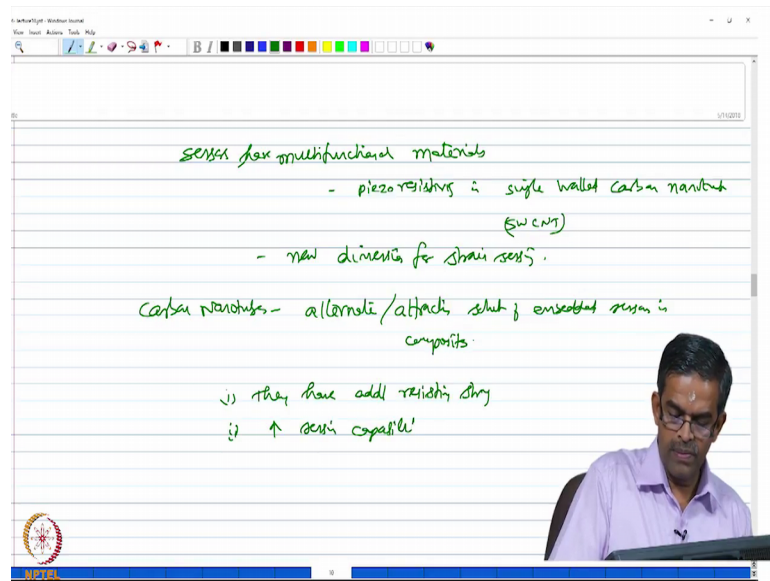 lecture10.pdf - Windows Journal
View Insert Actions Tools Help
B I
5/11/2018
sensors from multifunctional materials
- piezoresistivity in single walled carbon nanotube
(SWCNT)
- new dimension for strain sensing.
Carbon Nanotubes - alternate/attractive solut of embedded sensors in
composites.
i) they have addl resisting strng
ii) ↑ sensin capabili
10
NPTEL